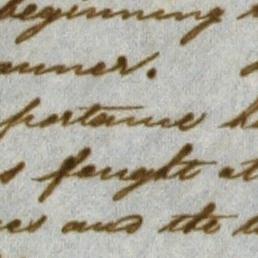 beginning
anner.
portance
s fought at
es and the